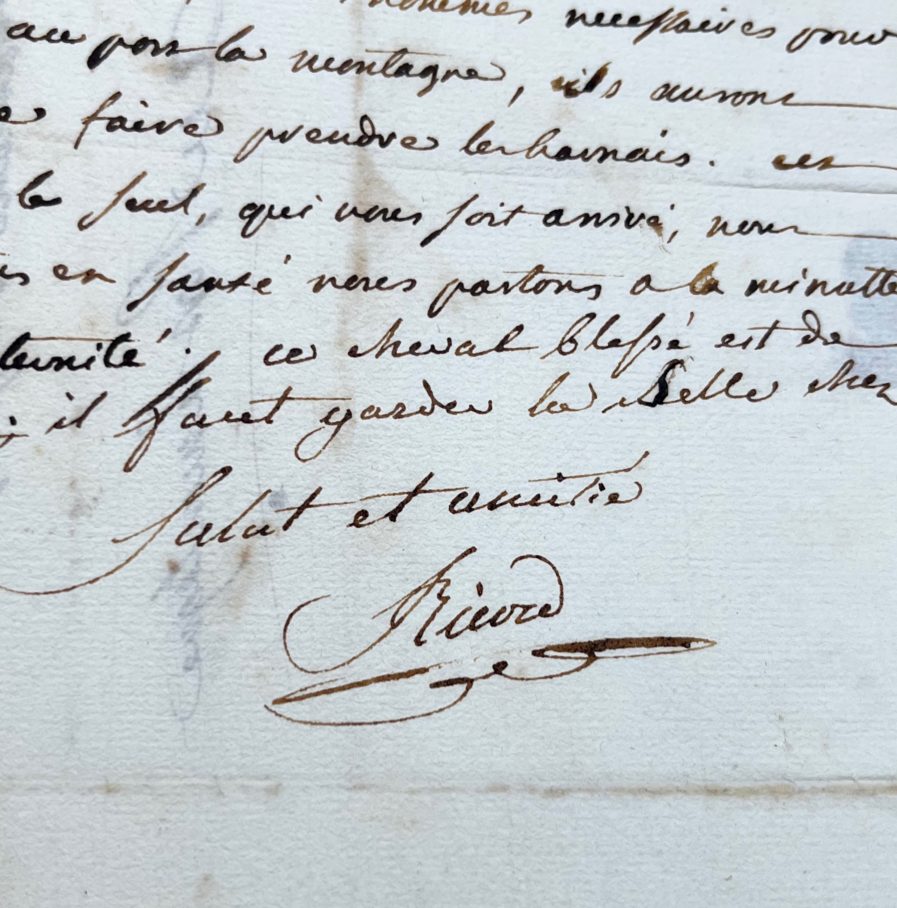 hommes necessaires pour
au port la montagne, ils auront
faire prendre les harnais. cet
le seul, qui vous soit arrivé, nous
en santé nous partons a la minutte
ce cheval blessé est de
il faut garder la selle chez
Salut et amitié
Ricord